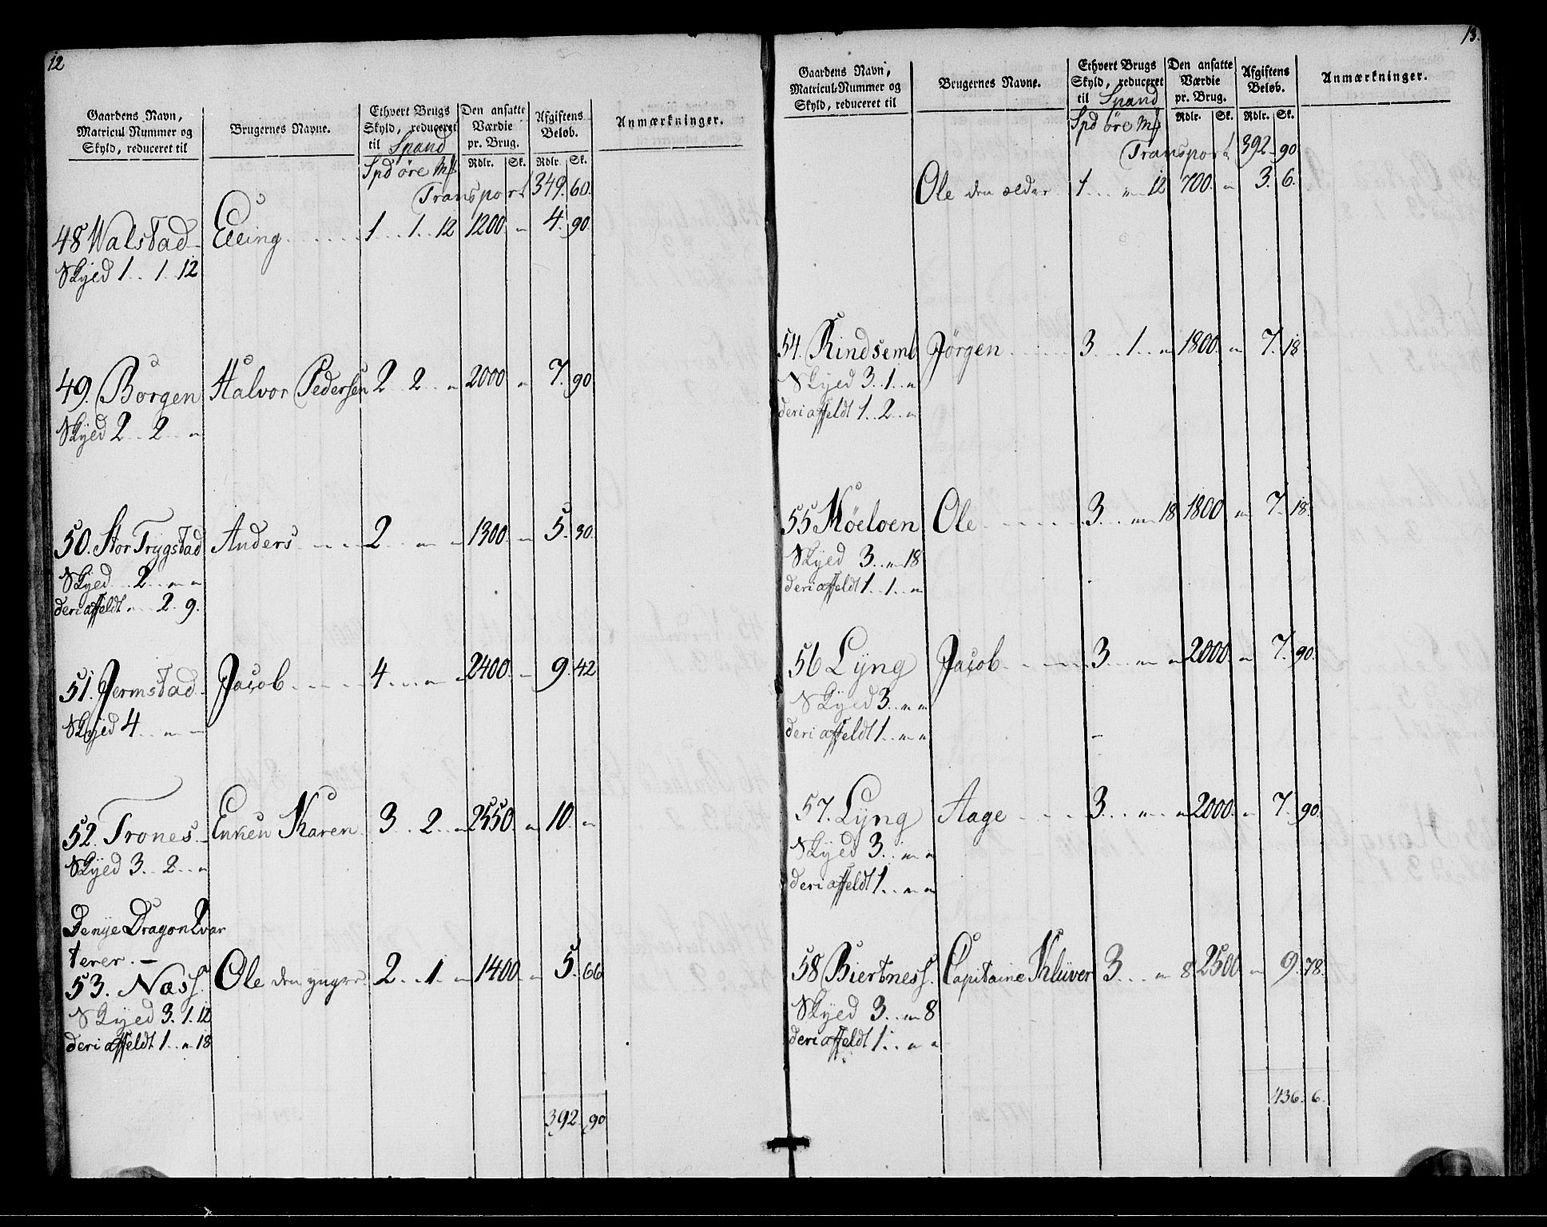 12
Gaardens Navn, Matricul Nummer og Skyld, reduceret til | Brugernes Navne. | Ethvert Brugs Skyld, reduceret til Spand | Den ansatte Værdie pr. Brug. | Afgiftens Beløb. | Anmærkninger.
Spd øre Mk | Rdlr. | Sk. | Rdlr. | Sk.
Transport 349. 60.
48 Walstad Elling 1 . . 1 . 12 1200 " 4. 90.
Skyld 1 . . 1 . 12
49. Borgen Halvor Pedersen 2 . . 2 . . " 2000 " 7. 90.
Skyld 2 . . 2 . . "
50. Stor Trygstad Anders 2 . . " " 1300 " 5. 30.
Skyld . . 2 . . " "
deri affeldt " . . 2 . 9.
51. Jermstad Jacob 4 . . " " 2400 " 9. 42
Skyld 4 . . " "
52. Trones Enken Karen 3 . 2 . . " 2550 " 10. "
Skyld 3 . . 2 . . "
Denye Dragon Qvar
terer. —
53. Næss. Ole den yngre 2 . . 1 . . " 1400. " 5. 66
Skyld 3. 1. 12
deri affeldt 1 . . " 18
392. 90
13.
Gaardens Navn, Matricul-Nummer og Skyld, reduceret til | Brugernes Navne. | Ethvert Brugs Skyld, reduceret til Spand | Den ansatte Værdie pr. Brug. | Afgiftens Beløb. | Anmærkninger.
Spd øre Mk | Rdlr. | Sk. | Rdlr. | Sk.
Transport 392. 90
Ole den ældar 1 . . " 12 700. " 3. 6.
54. Rindsem Jörgen 3 . . 1 . . " 1800. " 7. 18.
Skyld 3 . 1 . . "
deri affeldt 1 . . 2 . . "
55 Möeloen Ole 3 . . " 18 1800 " 7. 18.
Skyld 3 . . " 18
deri affeldt 1 . . 1 . . "
56 Lyng Jacob 3 . . " " 2000 " 7. 90.
Skyld 3 . . " "
deri affeldt 1 . . " "
57. Lyng Aage 3 . . " " 2000. " 7. 90.
Skyld 3 . . " "
deri affeldt 1 . . " "
58 Biertness. Capitaine Klüver 3 . . " 8 2500 " 9. 78.
Skyld 3 . . " 8
deri affeldt 1 . . " "
436. 6.